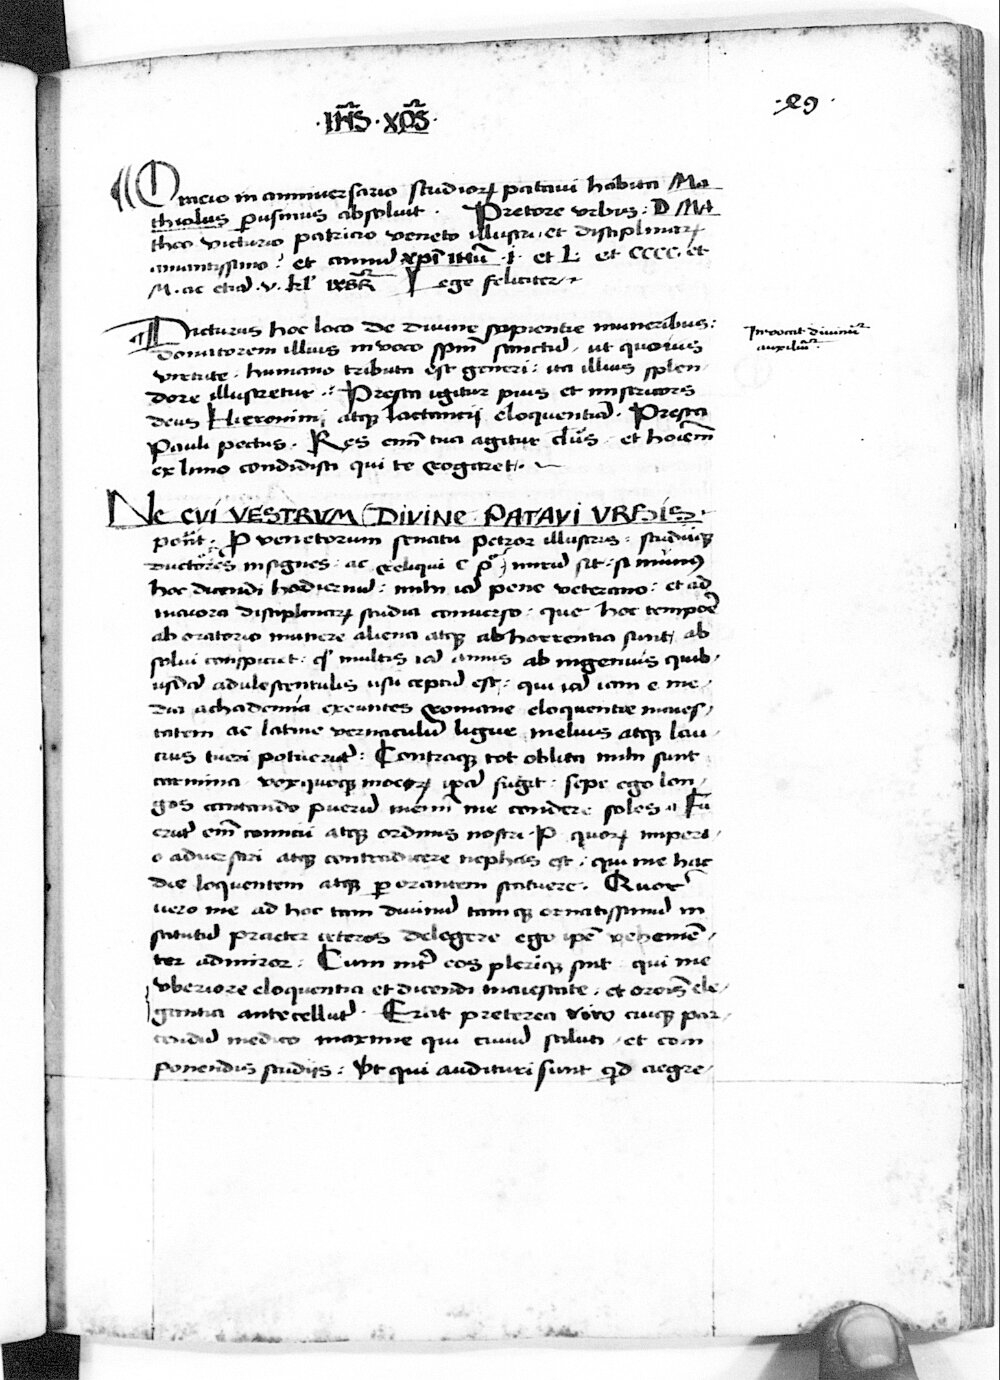 ·29·
·IHS·XPS·
Oracio in anniversario studioꝝ patavi habita Ma
thiolus perusinus absolvit. Pretore urbis: D Mat
theo victurio patricio veneto illustri· et disciplinaꝝ
amantissimo: et annuꝫ xpi ihu · I· et L· et CCCC· et
M· ac etiaꝫ ·V· kl' Lege feliciter·
Dicturus hoc loco de divine sapientie muneribus:
donatorem illius invoco spm sanctuꝫ· ut quoius
virtute· humano tributa est generi: ita illius splen
dore illustretur·: Presta igitur pius et misricors
deus Hieronimi atqꝫ lactancij eloquentiaꝫ. Presta
Pauli pectus. Res em tua agitur et hoiem
ex limo condidisti qui te rogaret.
Invocat divinuꝫ
auxiliuꝫ.
NE CUI VESTRUM DIVINE PATAVI URBIS·
P venetorum senatu pretor illustris: studiiqꝫ
ductores insignes: ac reliqui c p miruꝫ sit: si munus
hoc dicendi hodiernuꝫ: mihi iaꝫ pene veterano: et ad
maiora disciplinaꝝ studia converso: que hoc tempoe
ab oratorio munere aliena atqꝫ abhorrentia sunt, ab
solvi conspiciat: multis iaꝫ annis ab ingenuis quib
usdaꝫ adulescentulis usu ceptuꝫ est: qui iaꝫ iam e me
dia achademia exeuntes romane eloquentie maies
tatem ac latine vernaculuꝫ ligue melius atqꝫ lau
cius tueri potueruꝫ: Contraqꝫ tot oblita mihi sunt
carmina· voxquoqꝫ moeꝝ ipaꝫ fugit: sepe ego lon
gos cantando pueruꝫ memi me condere soles· Fu
eruꝫ em convicti atqꝫ ordinis nostri P quoꝝ imperi
o adversari atqꝫ contradicere nephas est: qui me hac
die loquentem atqꝫ perorantem statuere. Quor
vero me ad hoc tam divinuꝫ tamqꝫ ornatissimuꝫ in
stitutuꝫ praeter ceteros delegere ego ipe vehemen
ter admiror: Cum int eos pleriqꝫ sint qui me
uberiore eloquentia et dicendi maiestate· et orois ele
gantia antecelluꝫ. Erat preterea viro cuiqꝫ par
cenduꝫ medico maxime qui civiuꝫ saluti· et com
ponendis studiis: Ut qui audituri sunt qd aegre